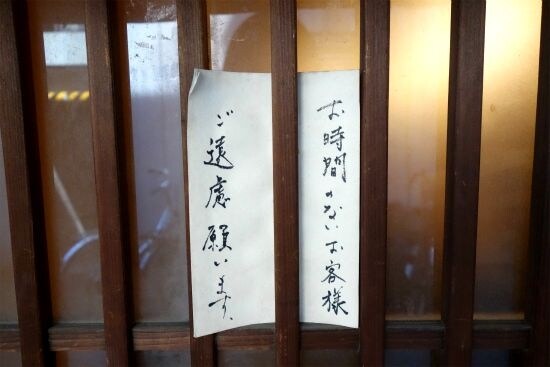 お時間のないお客様
ご遠慮願います。